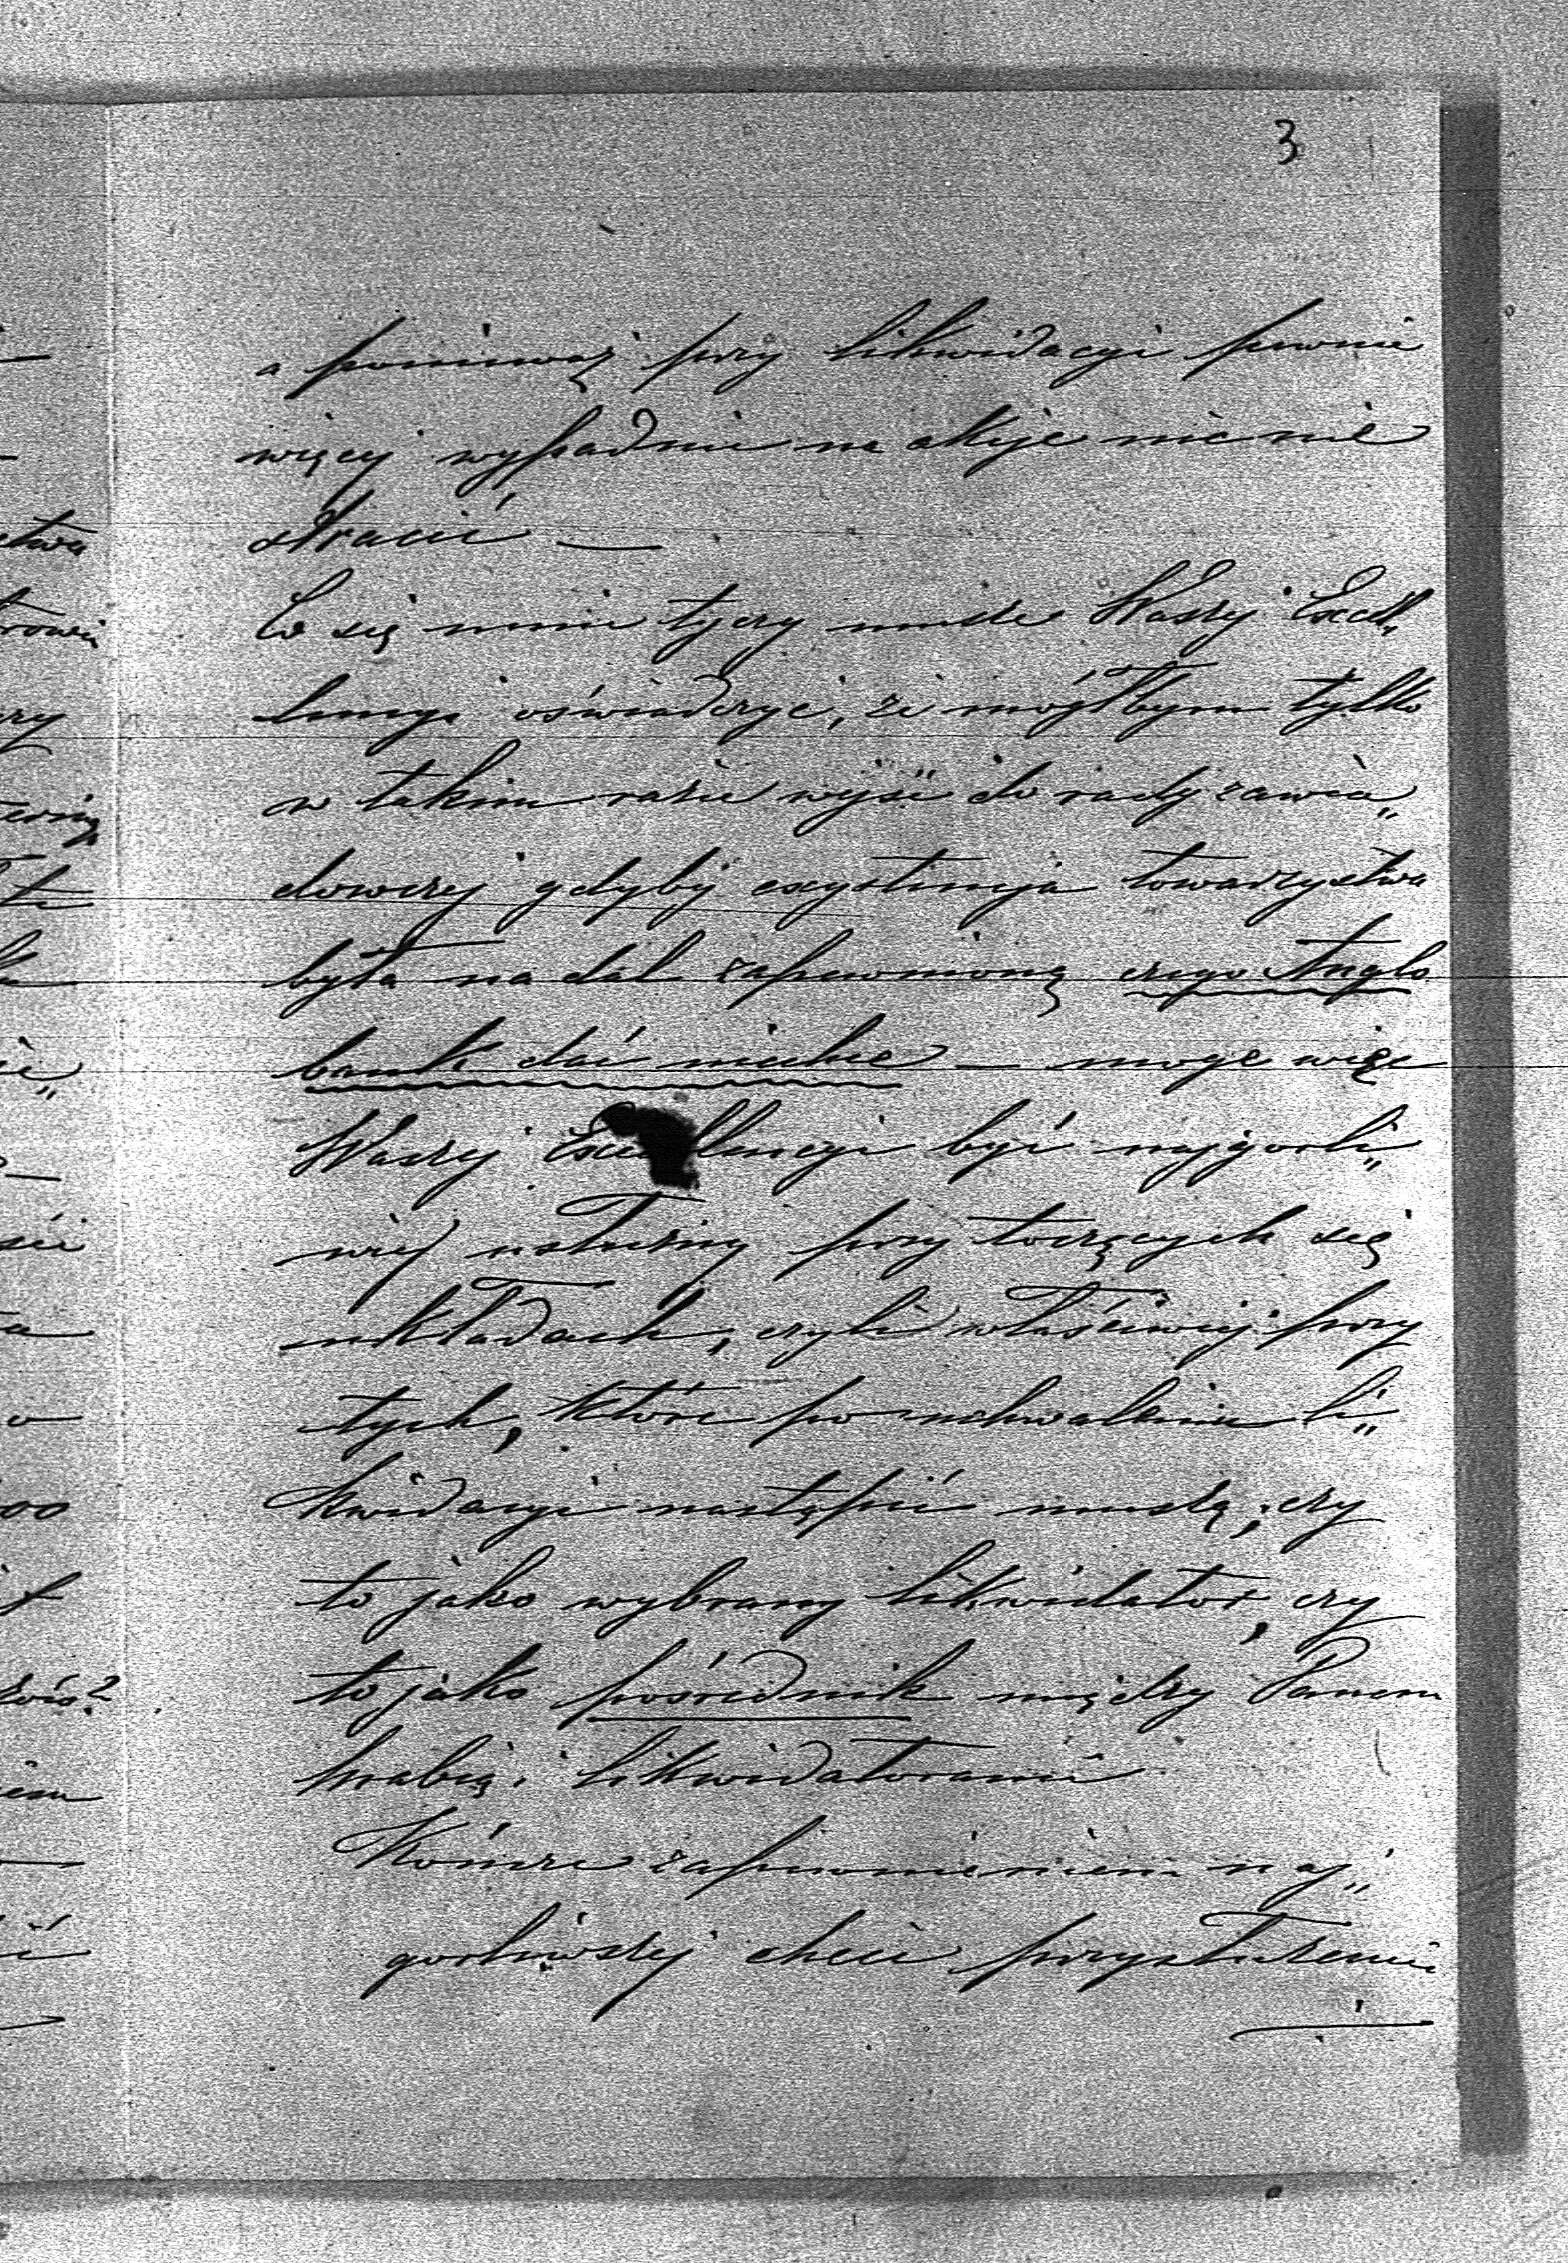 3
a ponieważ przy likwidacyi pewnie
więcej wypadnie na akcje nic nie
stracić —
Co się mnie tyczy muszę Waszej Excel„
lencyi oświadczyć, że mógłbym tylko
w takim razie wyjść do rady zawia„
dowczej gdyby exystencja towarzystwa
była nadal zapewnioną czego Anglo
bank dać nie chce — mogę więc
Waszej Excellencyi być najgorli„
wiej usłużny przy toczących się
układach, czyli właściwiej przy
tych, które po uchwaleniu li„
kwidacyi nastąpić muszą, czy
to jako wybrany likwidator, czy
to jako pośrednik między Panem
hrabią i likwidatorami
Kończe zapewnieniem naj„
gorliwszej chęci przysłużenia